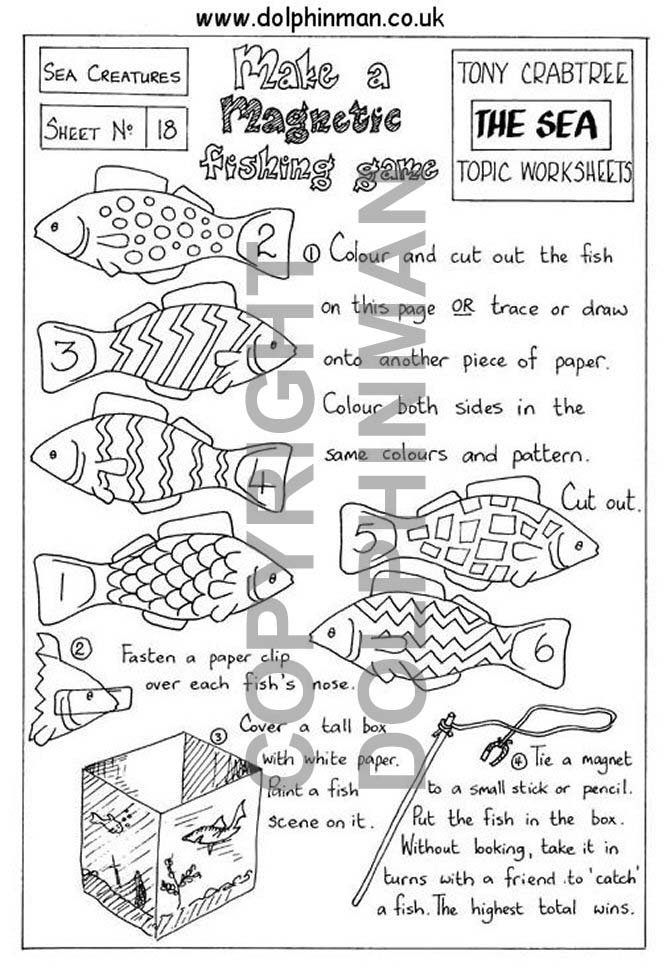 www.dolphinman.co.uk
SEA CREATURES
SHEET No 18
Make a
Magnetic
fishing game
TONY CRABTREE
THE SEA
TOPIC WORKSHEETS
2
3
4
1
5
6
① Colour and cut out the fish
on this page OR trace or draw
onto another piece of paper.
Colour both sides in the
same colours and pattern.
Cut out.
② Fasten a paper clip
over each fish's nose.
③ Cover a tall box
with white paper.
Paint a fish
scene on it.
④ Tie a magnet
to a small stick or pencil.
Put the fish in the box.
Without looking, take it in
turns with a friend to 'catch'
a fish. The highest total wins.
COPYRIGHT
DOLPHINMAN